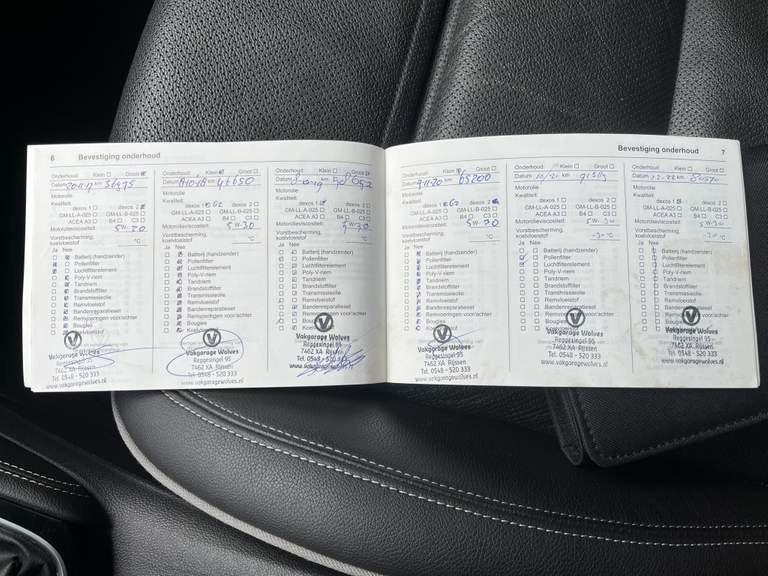 6 Bevestiging onderhoud
Onderhoud Klein Groot
Datum km
Motorolie
Kwaliteit:
dexos 1 dexos 2
GM-LL-A-025 GM-LL-B-025
ACEA A3 B4 C3
Motorolieviscositeit: 5W-30
Vorstbescherming,
koelvloeistof °C
Ja Nee
Batterij (handzender)
Pollenfilter
Luchtfilterelement
Poly-V-riem
Tandriem
Brandstoffilter
Transmissieolie
Remvloeistof
Bandenreparatieset
Remsparingen voor/achter
Bougies
Vakgarage Wolves
Reggesingel 95
7462 XA Rijssen
Tel. 0548 - 520 333
www.vakgaragewolves.nl
Onderhoud Klein Groot
Datum km 46650
Motorolie
Kwaliteit:
dexos 1 G2 dexos 2
GM-LL-A-025 GM-LL-B-025
ACEA A3 B4 C3
Motorolieviscositeit: 5W-30
Vorstbescherming,
koelvloeistof °C
Ja Nee
Batterij (handzender)
Pollenfilter
Luchtfilterelement
Poly-V-riem
Tandriem
Brandstoffilter
Transmissieolie
Remvloeistof
Bandenreparatieset
Remsparingen voor/achter
Bougies
Vakgarage Wolves
Reggesingel 95
7462 XA Rijssen
Tel. 0548 - 520 333
www.vakgaragewolves.nl
Onderhoud Klein Groot
Datum km
Motorolie
Kwaliteit:
dexos 1 dexos 2
GM-LL-A-025 GM-LL-B-025
ACEA A3 B4 C3
Motorolieviscositeit: 5W30
Vorstbescherming,
koelvloeistof °C
Ja Nee
Batterij (handzender)
Pollenfilter
Luchtfilterelement
Poly-V-riem
Tandriem
Brandstoffilter
Transmissieolie
Remvloeistof
Bandenreparatieset
Remsparingen voor/achter
Bougies
Vakgarage Wolves
Reggesingel 95
7462 XA Rijssen
Tel. 0548 - 520 333
www.vakgaragewolves.nl
Bevestiging onderhoud 7
Onderhoud Klein Groot
Datum 9-11-20 km 65200
Motorolie
Kwaliteit:
dexos 1 G2 dexos 2
GM-LL-A-025 GM-LL-B-025
ACEA A3 B4 C3
Motorolieviscositeit: 5W-30
Vorstbescherming,
koelvloeistof °C
Ja Nee
Batterij (handzender)
Pollenfilter
Luchtfilterelement
Poly-V-riem
Tandriem
Brandstoffilter
Transmissieolie
Remvloeistof
Bandenreparatieset
Remsparingen voor/achter
Bougies
Vakgarage Wolves
Reggesingel 95
7462 XA Rijssen
Tel. 0548 - 520 333
www.vakgaragewolves.nl
Onderhoud Klein Groot
Datum km
Motorolie
Kwaliteit:
dexos 1 dexos 2
GM-LL-A-025 GM-LL-B-025
ACEA A3 B4 C3
Motorolieviscositeit: 5W-30
Vorstbescherming,
koelvloeistof -30 °C
Ja Nee
Batterij (handzender)
Pollenfilter
Luchtfilterelement
Poly-V-riem
Tandriem
Brandstoffilter
Transmissieolie
Remvloeistof
Bandenreparatieset
Remsparingen voor/achter
Vakgarage Wolves
Reggesingel 95
7462 XA Rijssen
Tel. 0548 - 520 333
www.vakgaragewolves.nl
Onderhoud Klein Groot
Datum km
Motorolie
Kwaliteit:
dexos 1 dexos 2
GM-LL-A-025 GM-LL-B-025
ACEA A3 B4 C3
Motorolieviscositeit: 5W-30
Vorstbescherming,
koelvloeistof °C
Ja Nee
Batterij (handzender)
Pollenfilter
Luchtfilterelement
Poly-V-riem
Tandriem
Brandstoffilter
Transmissieolie
Remvloeistof
Bandenreparatieset
Remsparingen voor/achter
Vakgarage Wolves
Reggesingel 95
7462 XA Rijssen
Tel. 0548 - 520 333
www.vakgaragewolves.nl